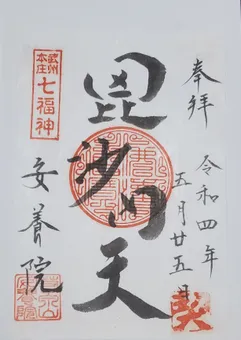 奉拝
令和四年
五月廿五日
毘沙門天
武州
本庄
七福神
安養院